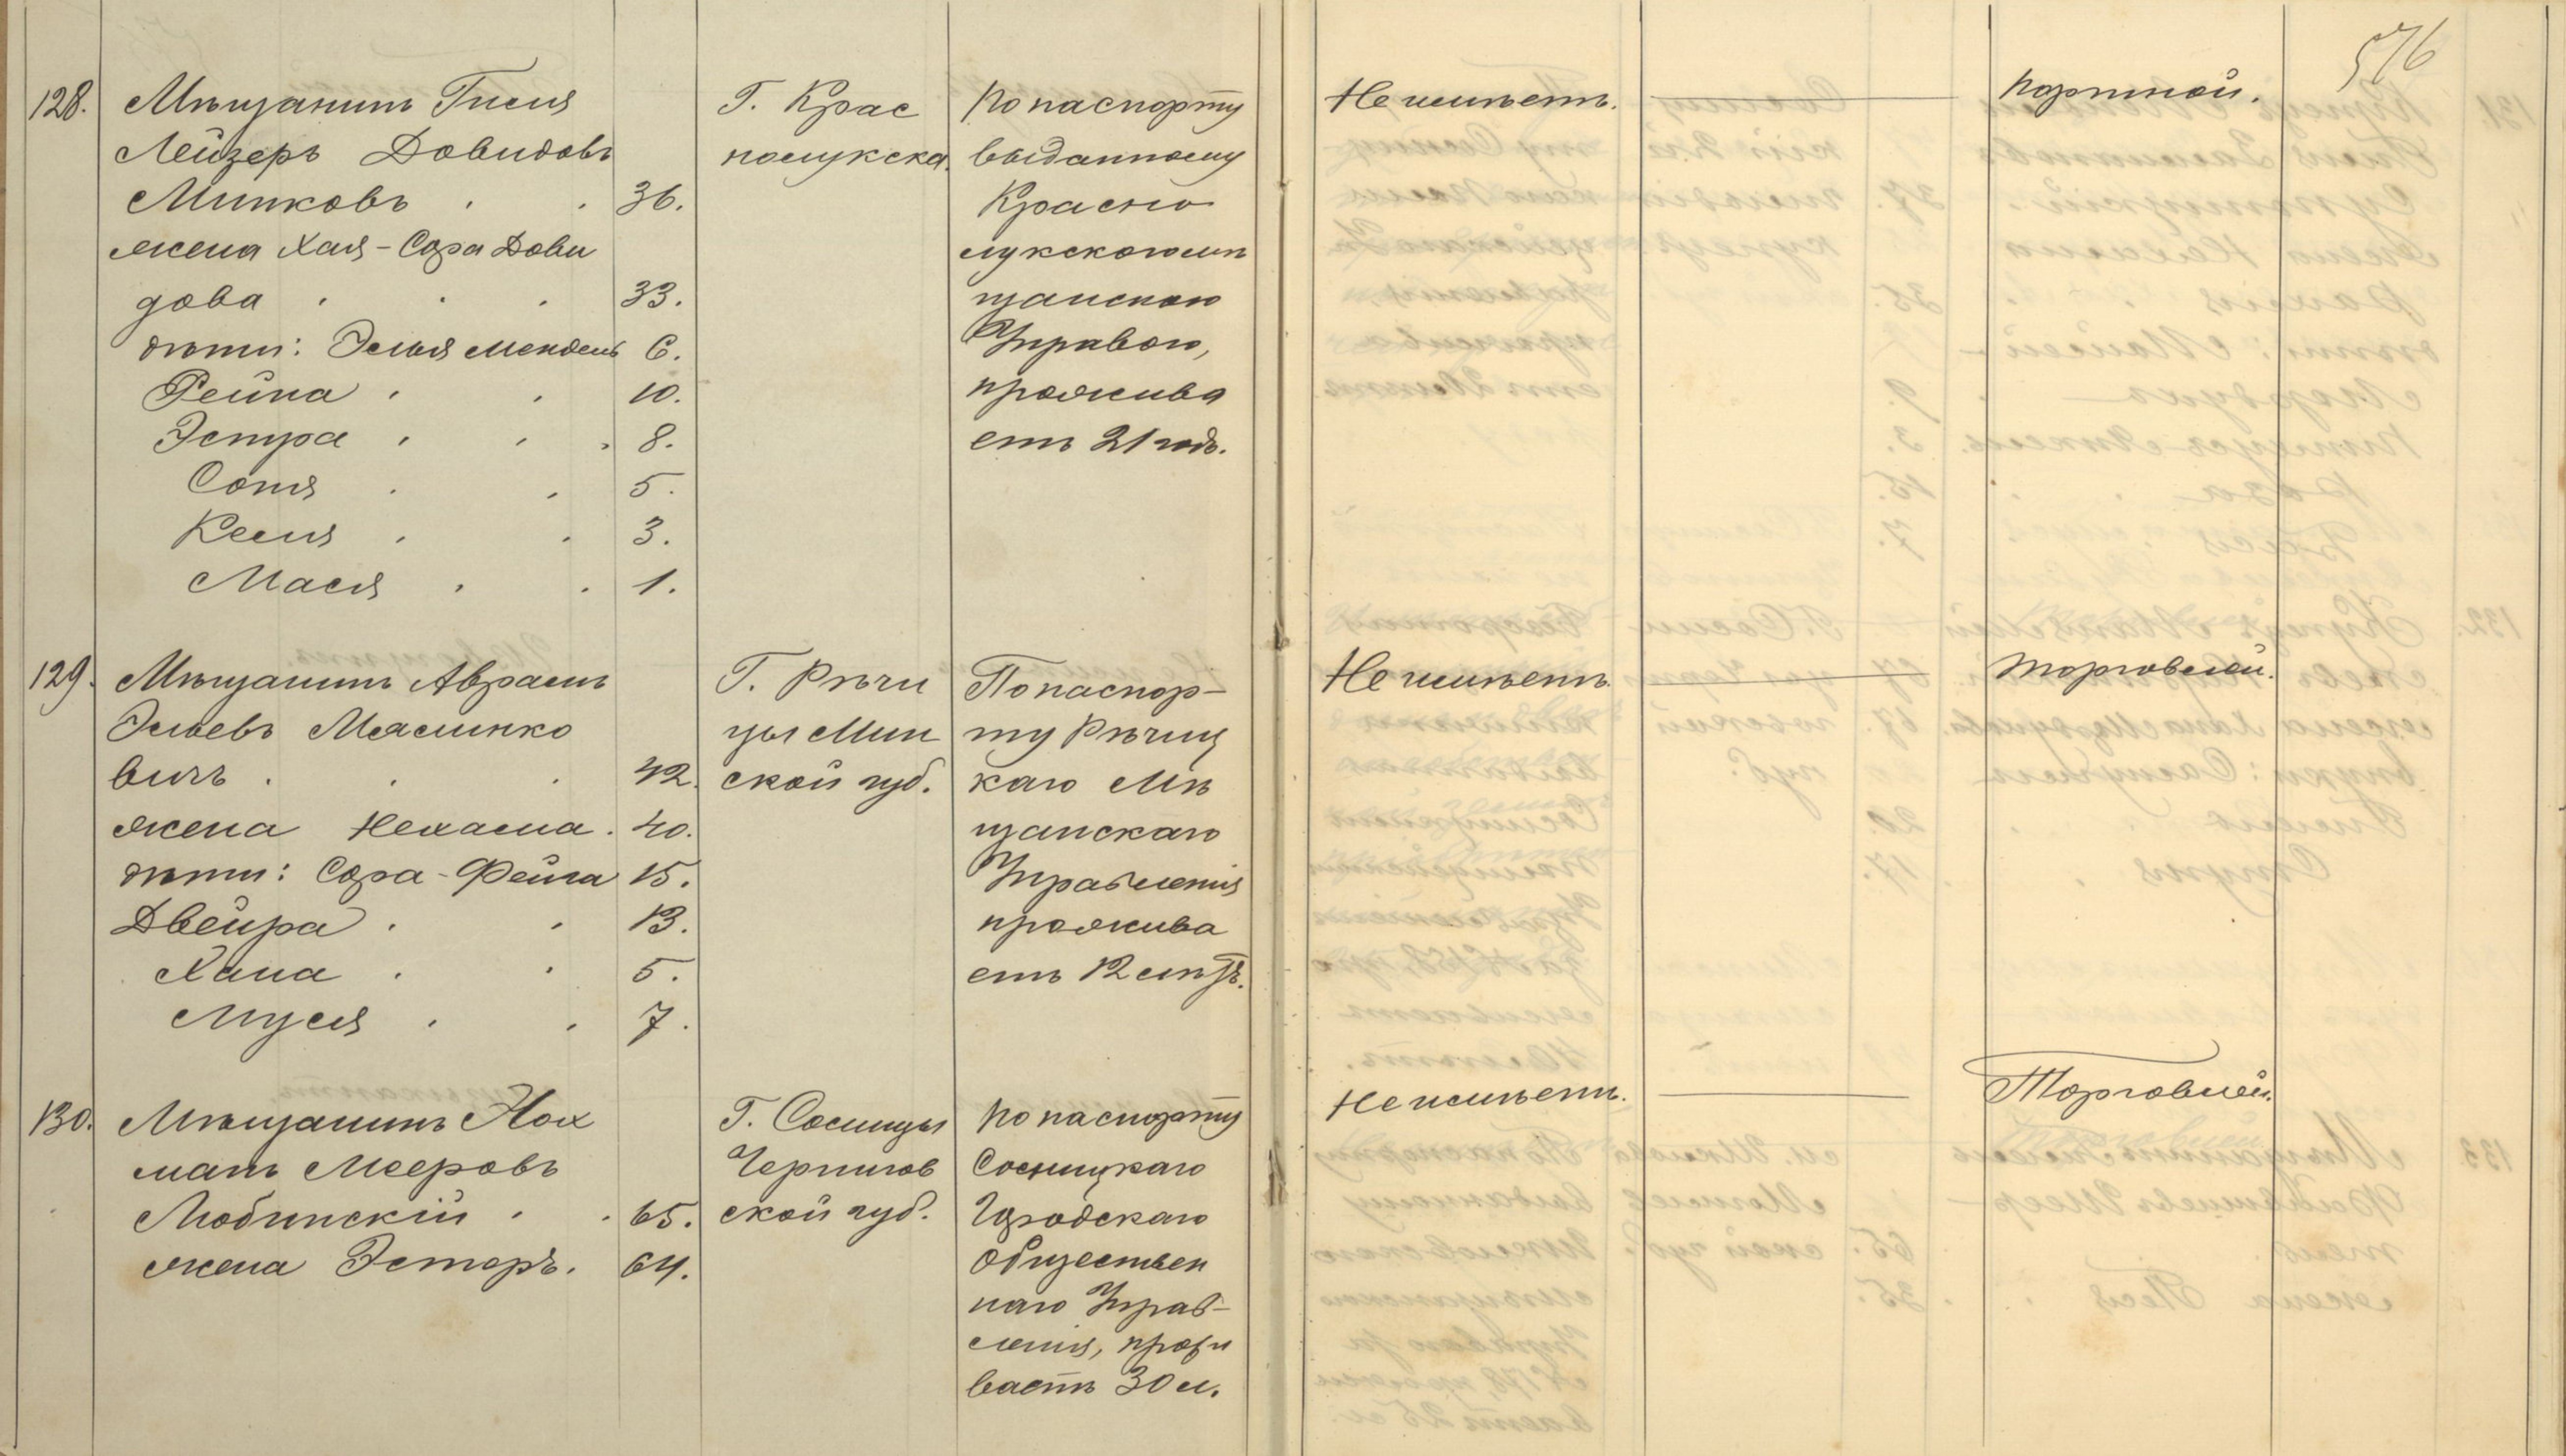 576
128.
Мѣщанинъ Гиля
Лейзеръ Довидовъ
Минковъ . . 36.
жена Хая-Сора Дови
дова . . . 33.
дѣти: Эелья Мендель 6.
Рейна . . 10.
Эстра . . . 8.
Соня . . 5.
Кеся . . 3.
Мася . . 1.
Г. Крас
нолукска.
По паспорту
выданному
Красно
лукскою мѣ
щанскою
Управою,
прожива
етъ 21 годъ.
Не имѣетъ.
Портной.
129.
Мѣщанинъ Авраамъ
Эльевъ Маслинко
вичъ . . . 42.
жена Нехама . 40.
дѣти: Сора-Фейга 15.
Двейра . . 13.
Хана . . 5.
Муся . . 7.
Г. Рѣчи
цы Мин
ской губ.
По паспор-
ту Рѣчиц
каго Мѣ
щанскаго
Управленія
прожива
етъ 12 лѣтъ.
Не имѣетъ.
торговлей.
130.
Мѣщанинъ Нох
манъ Мееровъ
Любинскій . . 65.
жена Эстеръ. 64.
Г. Сосницы
Чернигов
ской губ.
По паспорту
Сосницкаго
Городскаго
Обществен
наго Управ-
ленія, прожи
ваетъ 30 л.
Не имѣетъ.
Торговлей.